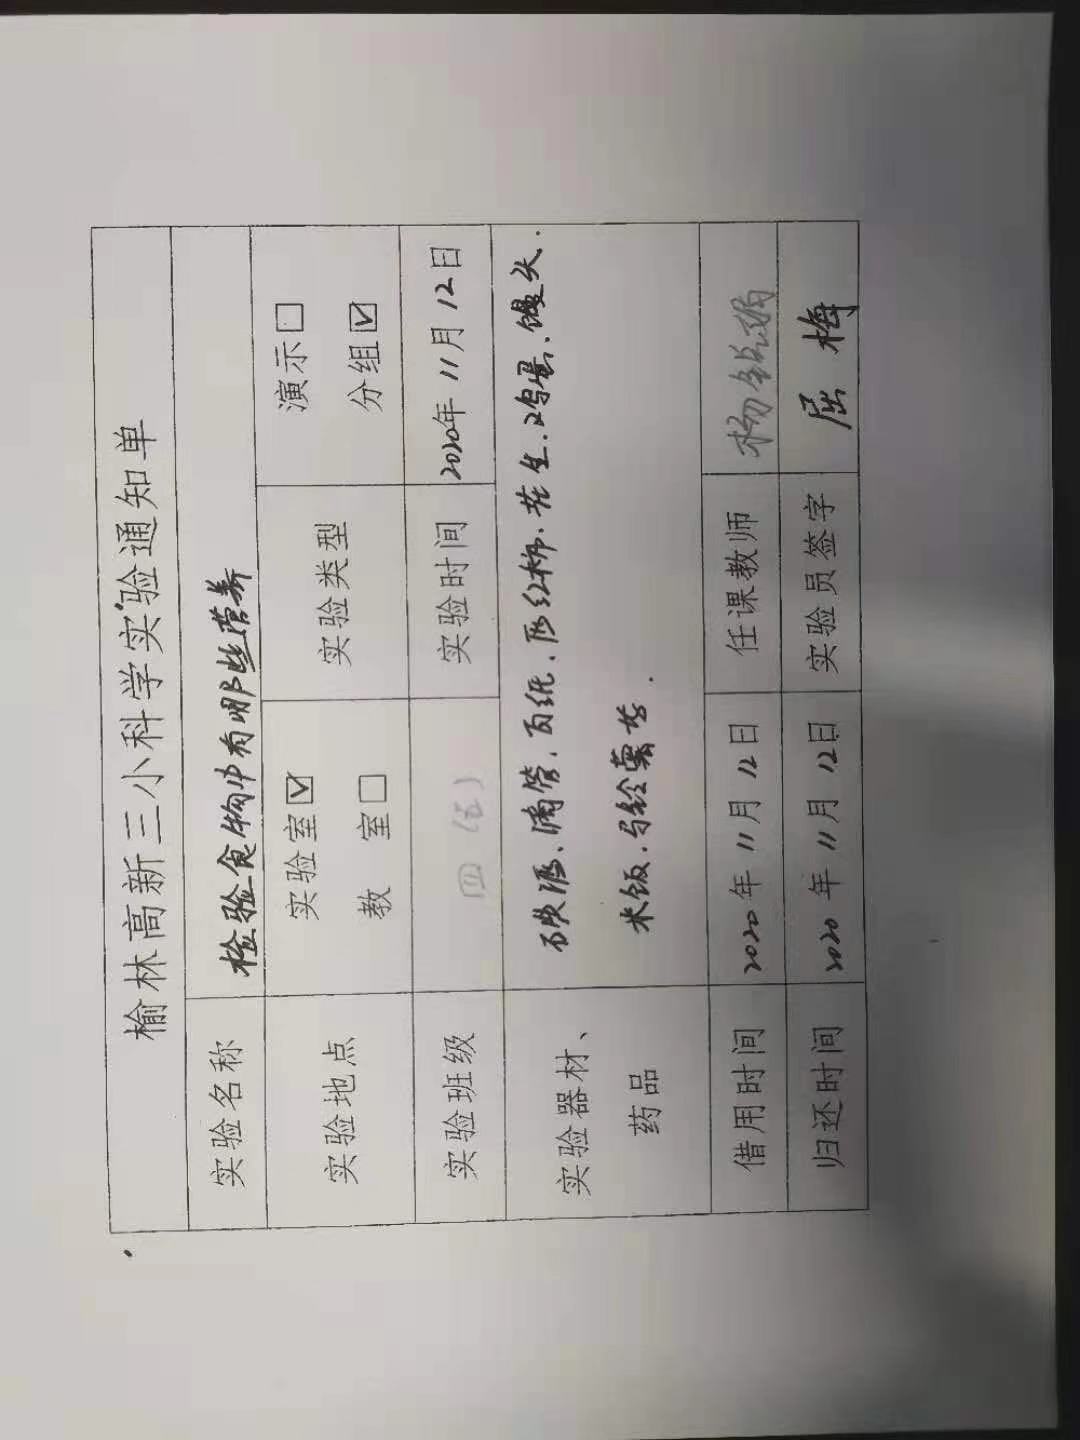 榆林高新三小科学实验通知单
实验名称 检验食物中有哪些营养
实验地点 实验室☑ 教 室☐ 实验类型 演示☐ 分组☑
实验班级 四（五） 实验时间 2020年11月12日
实验器材、药品 碘酒、滴管、白纸、西红柿、花生、鸡蛋、馒头、
米饭、马铃薯等.
借用时间 2020年11月12日 任课教师 杨
归还时间 2020年11月12日 实验员签字 屈梅